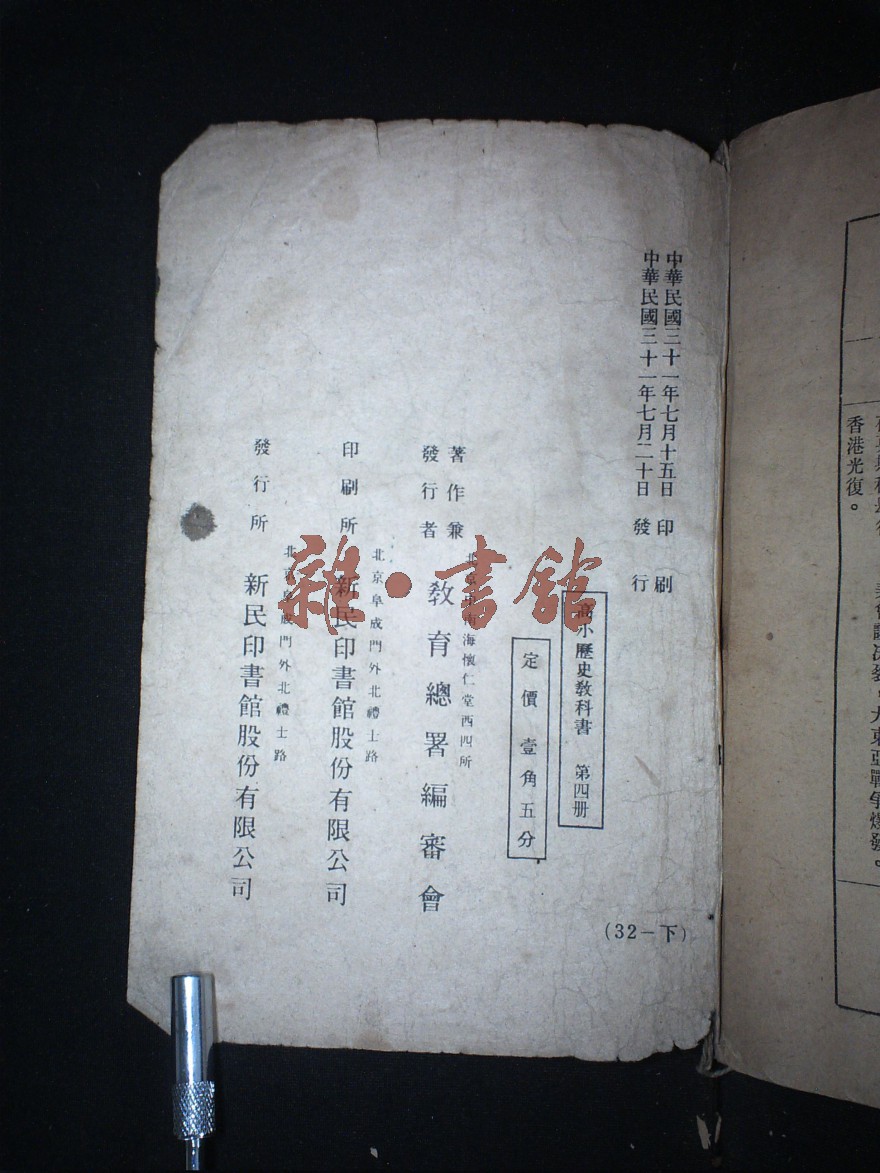 香港光復。
大東亞戰爭爆發。
中華民國三十一年七月十五日 印刷
中華民國三十一年七月二十日 發行
高小歷史教科書 第四册
定價 壹角五分
(32—下)
著作兼
發行者
北京中南海懷仁堂西四所
教育總署編審會
北京阜成門外北禮士路
印刷所 新民印書館股份有限公司
北京阜成門外北禮士路
發行所 新民印書館股份有限公司
雜·書館